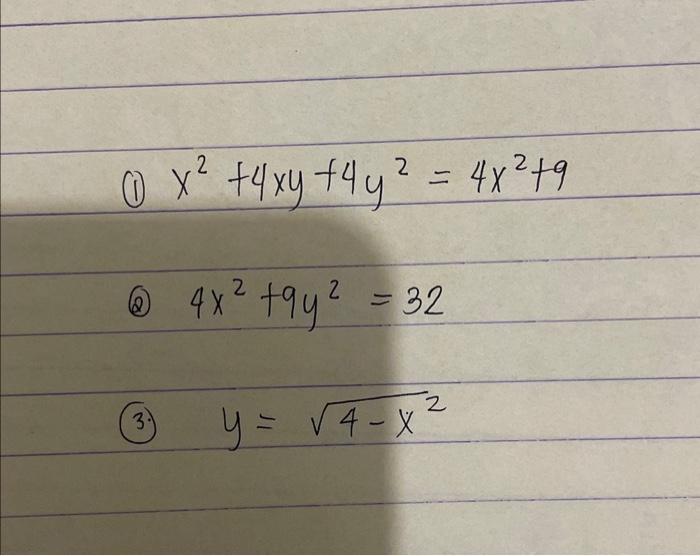 ① x² +4xy +4y² = 4x²+9
② 4x² +9y² = 32
③ y = √4-x²